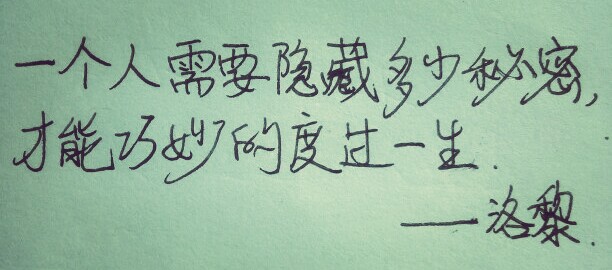 一个人需要隐藏多少秘密,
才能巧妙的度过一生.
——洛黎.